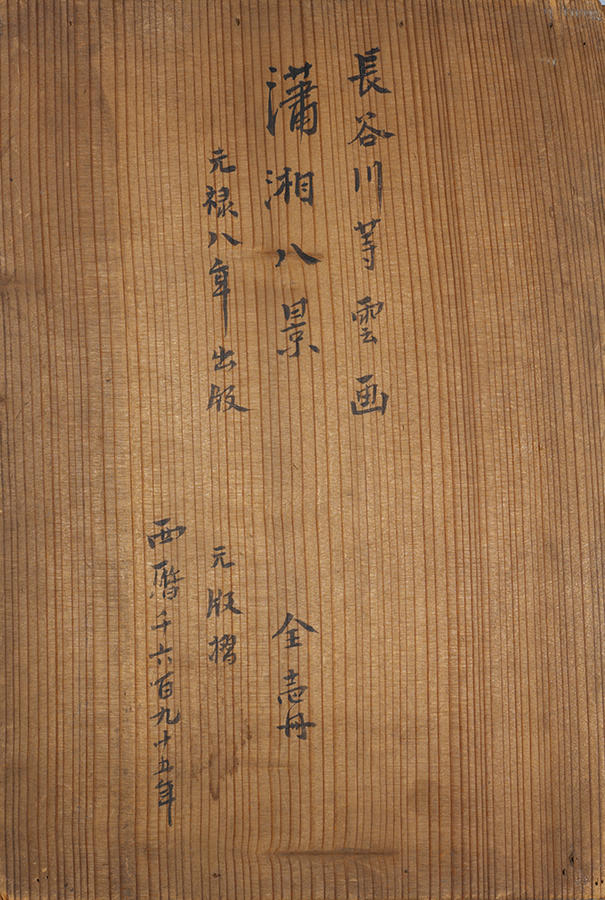 長谷川等雲画
瀟湘八景 全壱冊
元禄八年出版 元版摺
西暦千六百九十五年